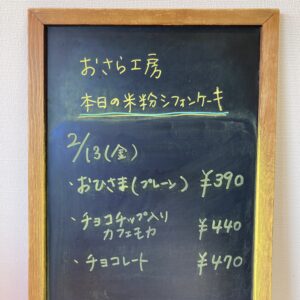 おさら工房
本日の米粉シフォンケーキ
2/13(金)
・おひさま(プレーン) ¥390
・チョコチップ入り
カフェモカ ¥440
・チョコレート ¥470